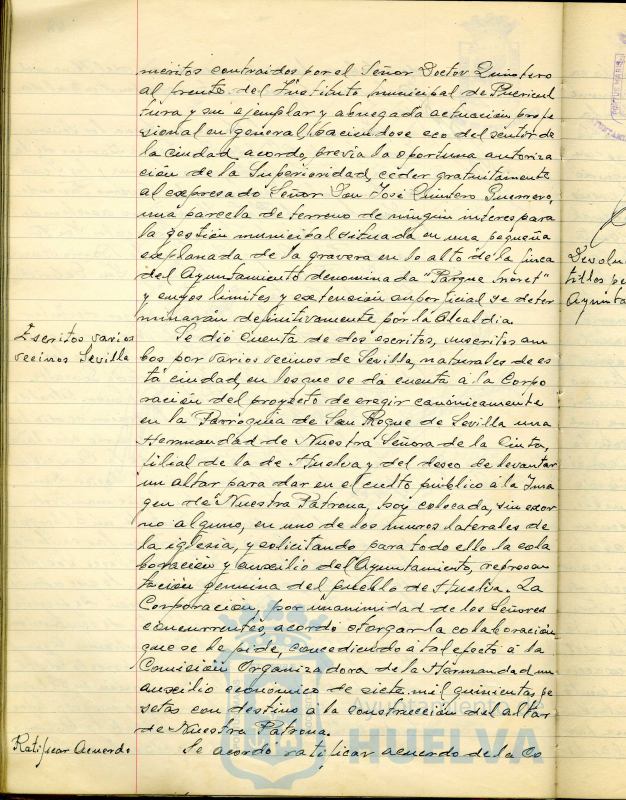 meritos contraidos por el Señor Doctor Quintero
al frente del Instituto Municipal de Puericul
tura y su ejemplar y abnegada actuación profe
sional en general, haciendose eco del sentir de
la ciudad, acordó, previa la oportuna autoriza
ción de la Superioridad, ceder gratuitamente
al expresado Señor Don José Quintero Guerrero,
una parcela de terreno de ningún interes para
la gestión municipal situada en una pequeña
explanada de la gravera en lo alto de la finca
del Ayuntamiento denominada "Parque Moret"
y cuyos limites y extensión superficial se deter
minarán definitivamente por la Alcaldia.
Escritos varios
vecinos Sevilla
Se dió cuenta de dos escritos, suscritos am
bos por varios vecinos de Sevilla, naturales de es
ta ciudad, en los que se dá cuenta á la Corpo
ración del proyecto de eregir canónicamente
en la Parroquia de San Roque de Sevilla una
Hermandad de Nuestra Señora de la Cinta,
filial de la de Huelva y del deseo de levantar
un altar para dar en el culto público á la Ima
gen de Nuestra Patrona, hoy colocada, sin exor
no alguno, en uno de los muros laterales de
la iglesia, y solicitando para todo ello la cola
boración y auxilio del Ayuntamiento, represen
tación genuina del pueblo de Huelva. La
Corporación, por unanimidad de los Señores
concurrentes, acordó otorgar la colaboración
que se le pide, concediendo á tal efecto á la
Comisión Organizadora de la Hermandad un
auxilio económico de siete mil quinientas pe
setas con destino a la construcción del altar
de Nuestra Patrona.
Ratificar Acuerdo
Se acordó ratificar acuerdo de la Co
Devolu
Ayunta
Ayuntamiento de
HUELVA